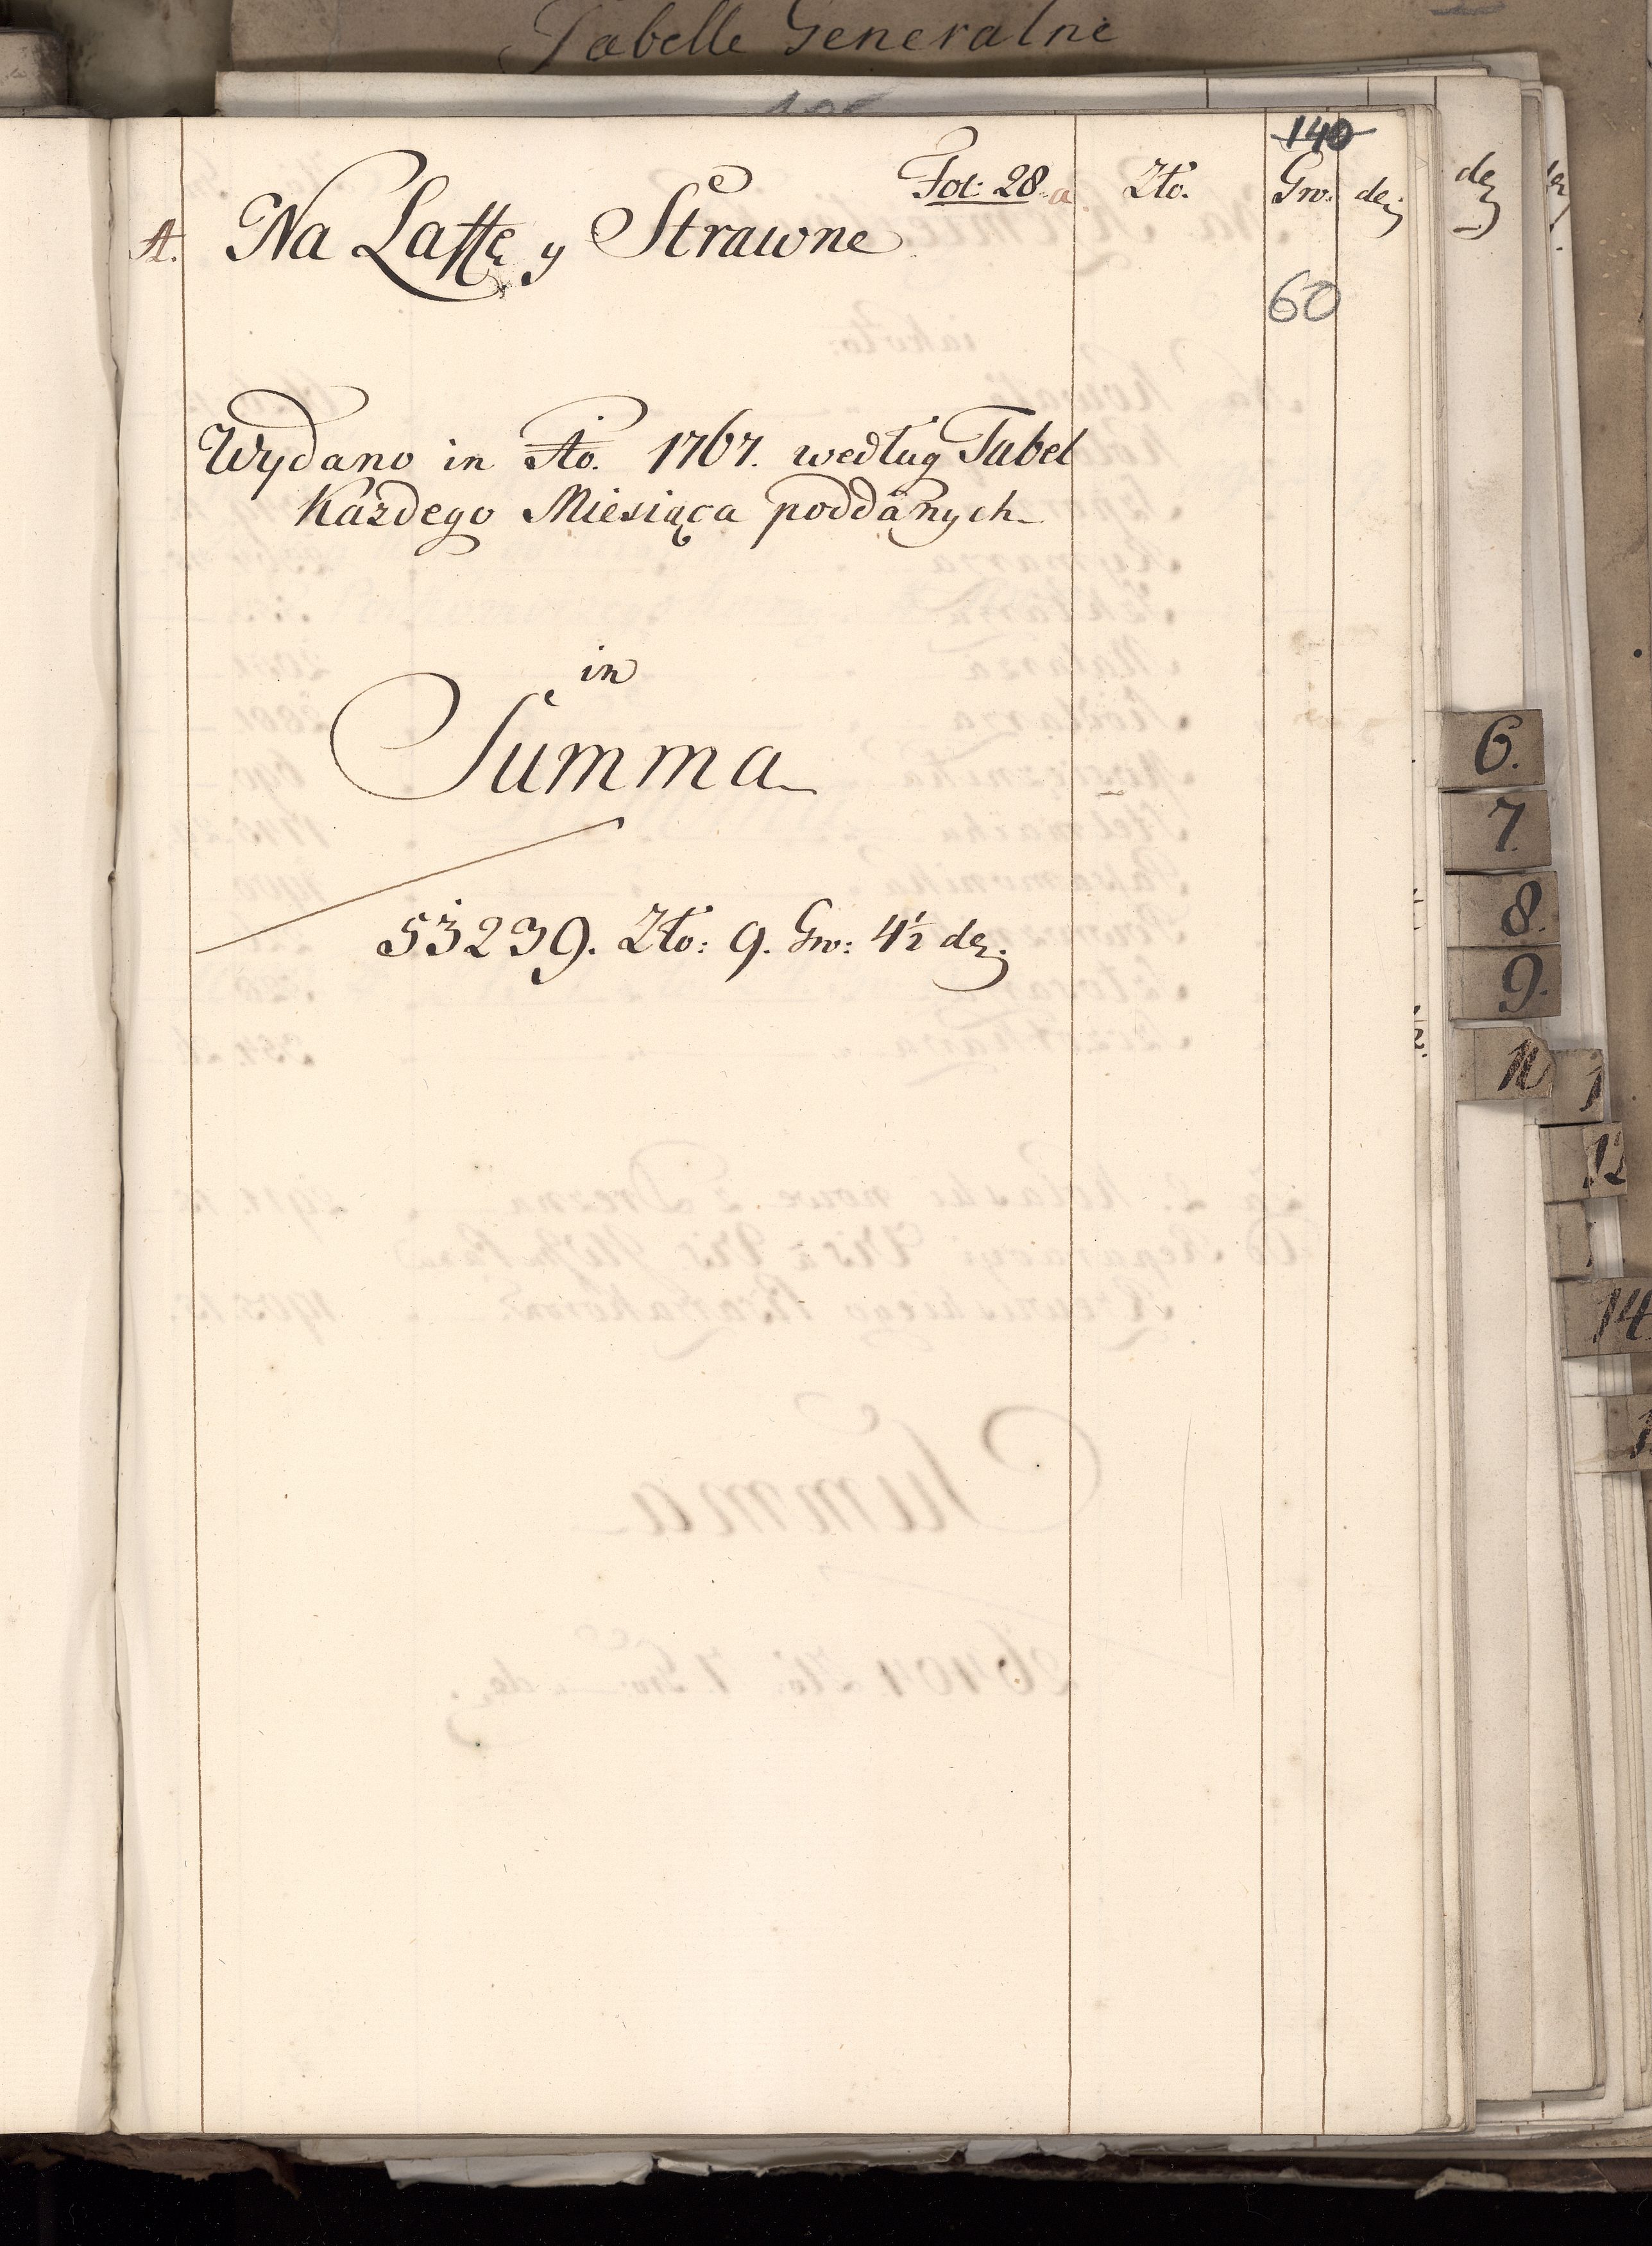 Tabelle Generalne
140
Fol: 28. a
Zło. Gro. de;
A. Na Laffę y Strawne
60
Wydano in Ao. 1767. według Tabel
Każdego Miesiąca poddanych
in
Summa
53239. Zło: 9. Gro: 4½ de;
6.
7.
8.
9.
11
12
14